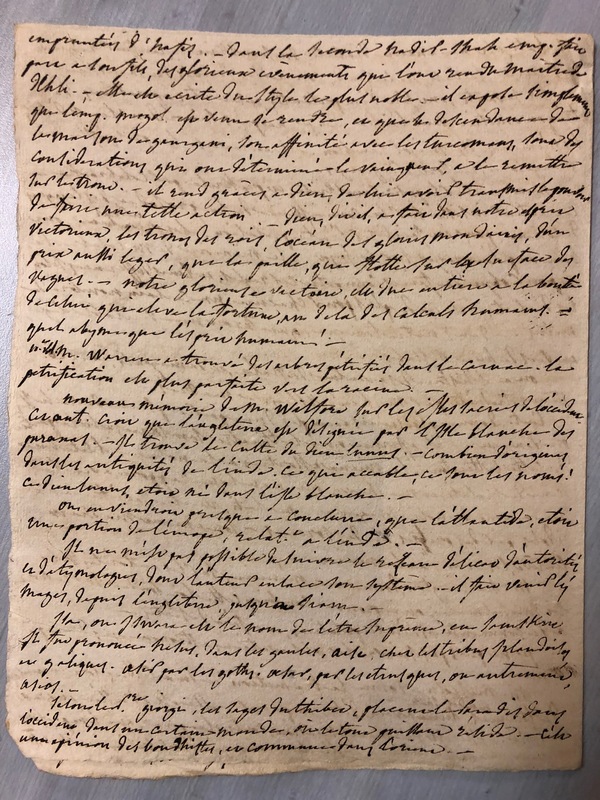 empruntés d'hafiz. - Dans la seconde nadil-Shah emp. fait
part a son fils, des glorieux évènements qui l'ont rendu maitre de
Dehli. - elle est écrite du style le plus noble. - il expose simplement
que l'emp. mogol est venu se rendre, et que la descendance de
la maison de gourgani, son affinité avec les turcomans, sont des
considérations qui ont déterminé le vainqueur, a le remettre
sur le trone. - il rend graces a dieu, de lui avoir transmis le pouvoir
de faire une telle action. - dieu, dit-il, a fait dans notre esprit
victorieux, les trones des rois, l'océan des gloires mondaines, d'un
prix aussi leger, que la paille, qui flotte sur la surface des
vagues. - notre glorieuse victoire, est due entiere a la bonté
de celui qui eleve la fortune, au dela des calculs humains. -
quel abyme que l'esprit humain! -
M. Warren a trouvé des arbres pétrifiés dans le carnac. la
pétrification est plus parfaite vers la racine. -
nouveau mémoire de M. Wilford sur les isles sacrées de l'occident
ce savt. croit que l'angleterre est désignée par l'isle blanche des
puranas. - Il trouve le culte du dieu lunus. - Combien d'origines
dans les antiquités de l'inde. Ce qui accable, ce sont les noms!
ce dieu lunus, etoit né dans l'isle blanche. -
On en viendroit presque a conclure, que l'atlantide, etoit
une portion de l'europe, relat.t a l'inde. -
Il ne m'est pas possible de suivre le réseau délié d'autorités
et d'étymologies, dont l'auteur enlace son système. - il fait venir les
mages, depuis l'angleterre, jusqu'a Siam. -
Isa, ou Iswara est le nom de l'etre suprème, en Samskrit
Il fut prononcé hesus, dans les gaules, chez les tribus
et gothiques. par les goths. oesar, par les etrusques, ou autrement,
aesos. -
Selon le giorgi, les sages du thibet, placent le paradis dans
l'occident dans un certain monde, ou le tout puissant reside. - C'est
une opinion des boudhistes, et commune dans l'orient. -